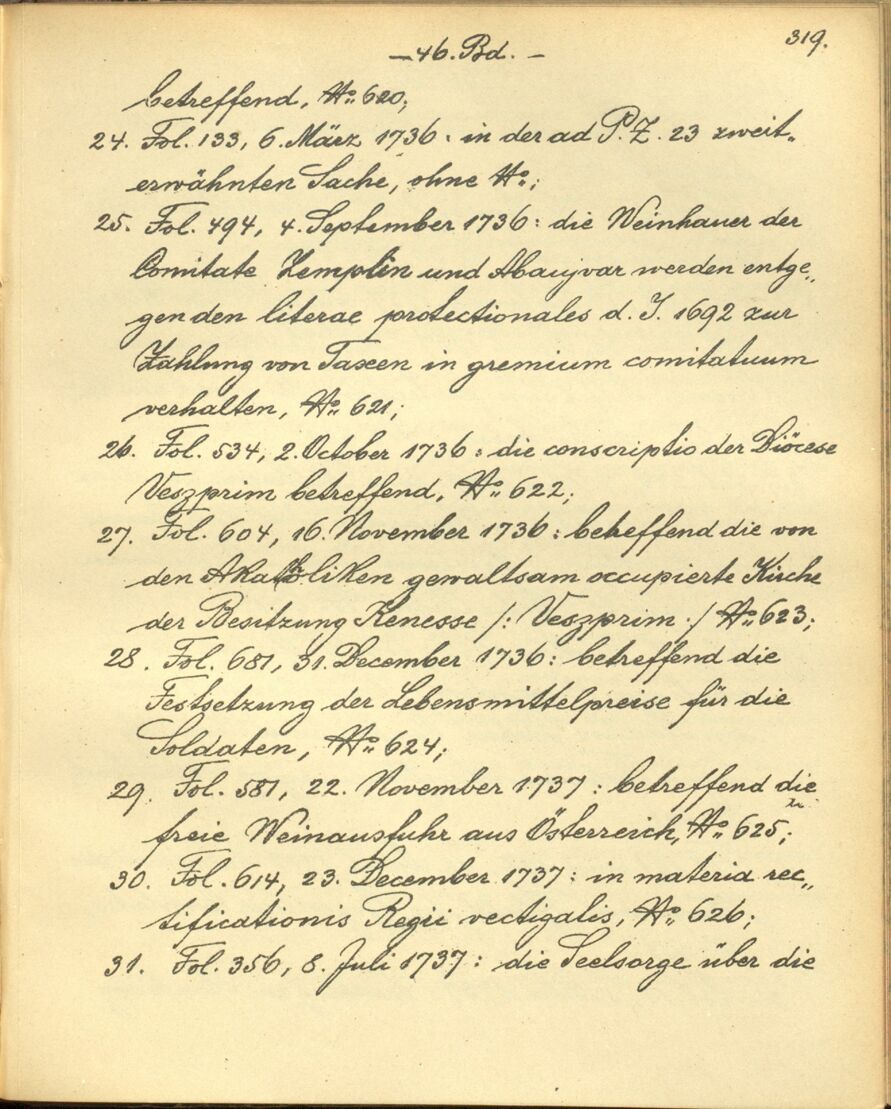 319.
— 46. Bd. —
betreffend, No: 620;
24. Fol. 133, 6. März 1736: in der ad P. Z. 23 zweit„
erwähnten Sache, ohne No:;
25. Fol. 494, 4. September 1736: die Weinhauer der
Comitate Zemplin und Abaujvar werden entge„
gen den literae protectionales d. J. 1692 zur
Zahlung von Taxen in gremium comitatuum
verhalten, No: 621;
26. Fol. 534, 2. October 1736: die conscriptio der Diöcese
Veszprim betreffend, No: 622;
27. Fol. 604, 16. November 1736: betreffend die von
den Akatholiken gewaltsam occupierte Kirche
der Besitzung Kenesse /: Veszprim :/ No: 623;
28. Fol. 681, 31. December 1736: betreffend die
Festsetzung der Lebensmittelpreise für die
Soldaten, No: 624;
29. Fol. 581, 22. November 1737: betreffend die
freie Weinausfuhr aus Österreich, No: 625;
30. Fol. 614, 23. December 1737: in materia rec„
tificationis Regii vectigalis, No: 626;
31. Fol. 356, 8. Juli 1737: die Seelsorge über die